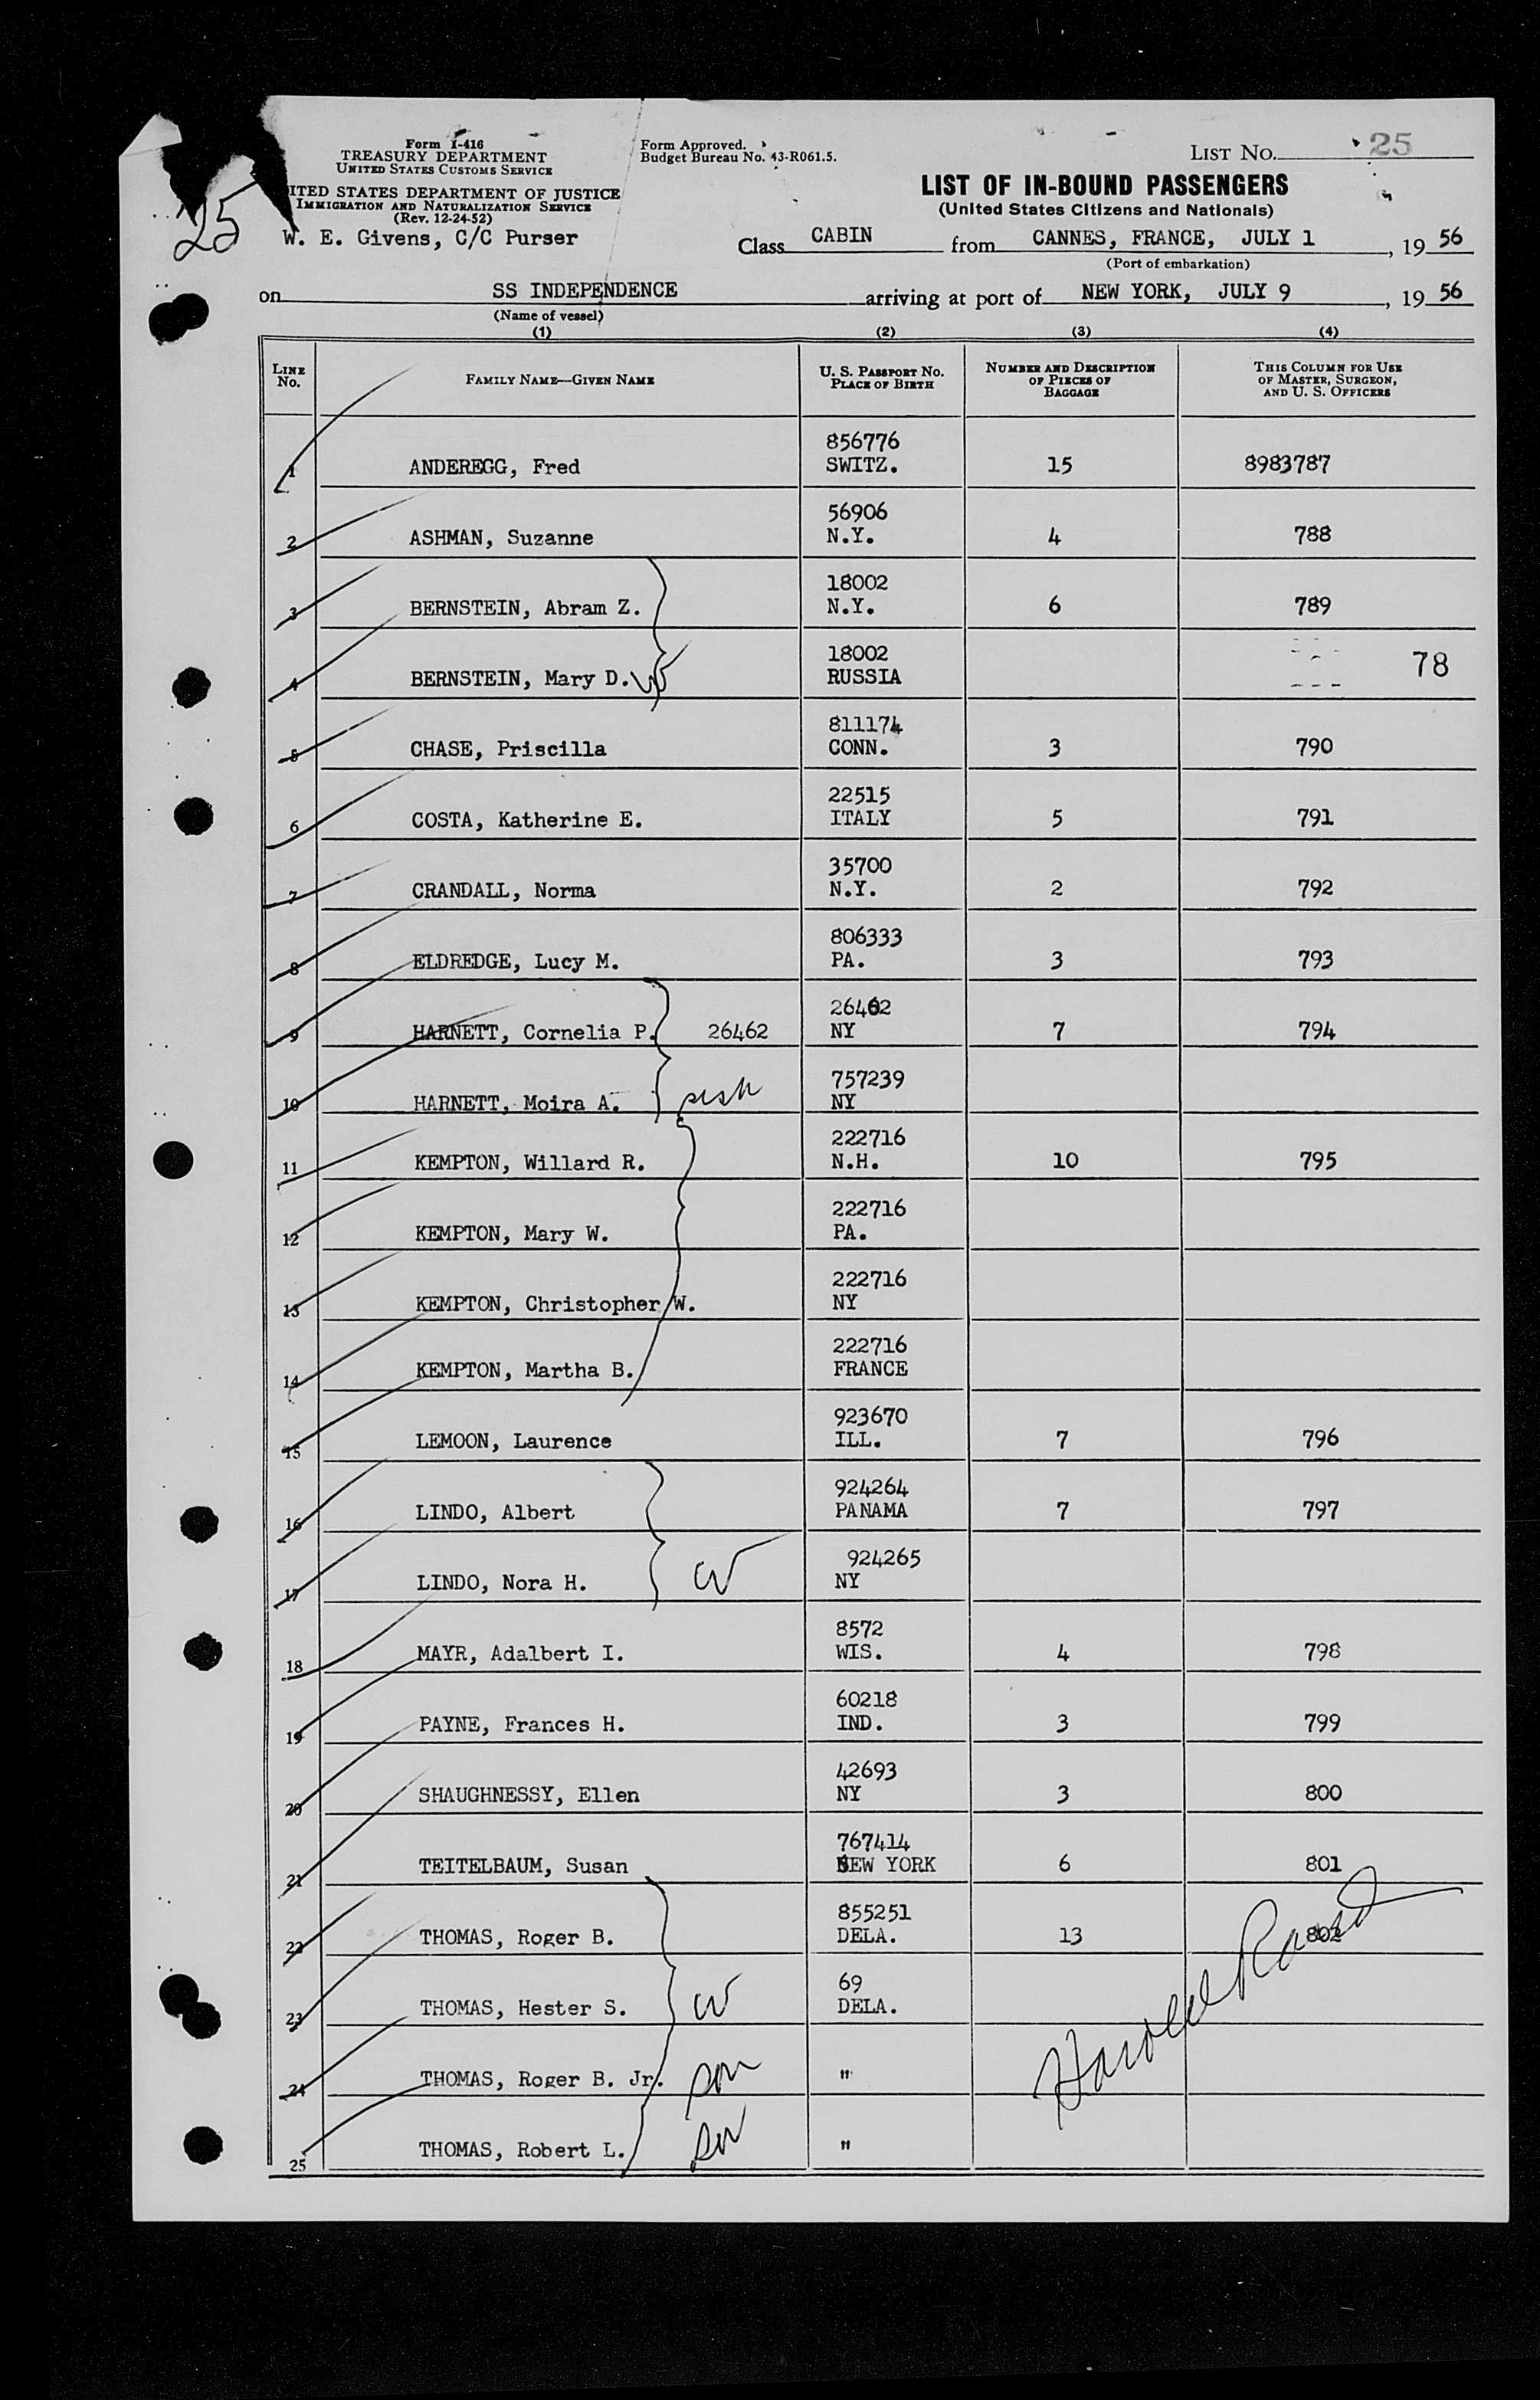 Form I-416
TREASURY DEPARTMENT
UNITED STATES CUSTOMS SERVICE
ITED STATES DEPARTMENT OF JUSTICE
IMMIGRATION AND NATURALIZATION SERVICE
(Rev. 12-24-52)
25
W. E. Givens, C/C Purser
Form Approved.
Budget Bureau No. 43-R061.5.
LIST NO. 25
LIST OF IN-BOUND PASSENGERS
(United States Citizens and Nationals)
Class CABIN from CANNES, FRANCE, JULY 1, 19 56
(Port of embarkation)
on SS INDEPENDENCE arriving at port of NEW YORK, JULY 9, 19 56
(Name of vessel)
(1) (2) (3) (4)
LINE No. FAMILY NAME—GIVEN NAME U. S. PASSPORT NO. PLACE OF BIRTH NUMBER AND DESCRIPTION OF PIECES OF BAGGAGE THIS COLUMN FOR USE OF MASTER, SURGEON, AND U. S. OFFICERS
856776
1 ANDEREGG, Fred SWITZ. 15 8983787
56906
2 ASHMAN, Suzanne N.Y. 4 788
18002
3 BERNSTEIN, Abram Z. N.Y. 6 789
18002
4 BERNSTEIN, Mary D. W RUSSIA 78
811174
5 CHASE, Priscilla CONN. 3 790
22515
6 COSTA, Katherine E. ITALY 5 791
35700
7 CRANDALL, Norma N.Y. 2 792
806333
8 ELDREDGE, Lucy M. PA. 3 793
26462
9 HARNETT, Cornelia P. 26462 NY 7 794
757239
10 HARNETT, Moira A. NY
222716
11 KEMPTON, Willard R. N.H. 10 795
222716
12 KEMPTON, Mary W. PA.
222716
13 KEMPTON, Christopher W. NY
222716
14 KEMPTON, Martha B. FRANCE
923670
15 LEMOON, Laurence ILL. 7 796
924264
16 LINDO, Albert PANAMA 7 797
924265
17 LINDO, Nora H. W NY
8572
18 MAYR, Adalbert I. WIS. 4 798
60218
19 PAYNE, Frances H. IND. 3 799
42693
20 SHAUGHNESSY, Ellen NY 3 800
767414
21 TEITELBAUM, Susan NEW YORK 6 801
855251
22 THOMAS, Roger B. DELA. 13 802
69
23 THOMAS, Hester S. W DELA.
24 THOMAS, Roger B. Jr. son "
25 THOMAS, Robert L. son "